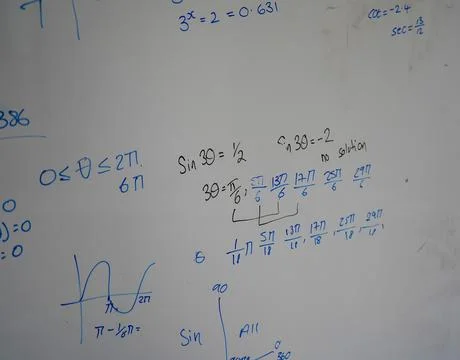 3ˣ = 2 = 0.631
cot = -2.4
sec = 13/12
386
0 ≤ θ ≤ 2π
6π
Sin 3θ = 1/2
Sin 3θ = -2
no solution
3θ = π/6, 5π/6 13π/6 17π/6 25π/6 29π/6
0
) = 0
= 0
θ 1/18 π 5π/18 13π/18, 17π/18, 25π/18, 29π/18,
π 2π
π - 1/6π =
90
Sin All
0
360